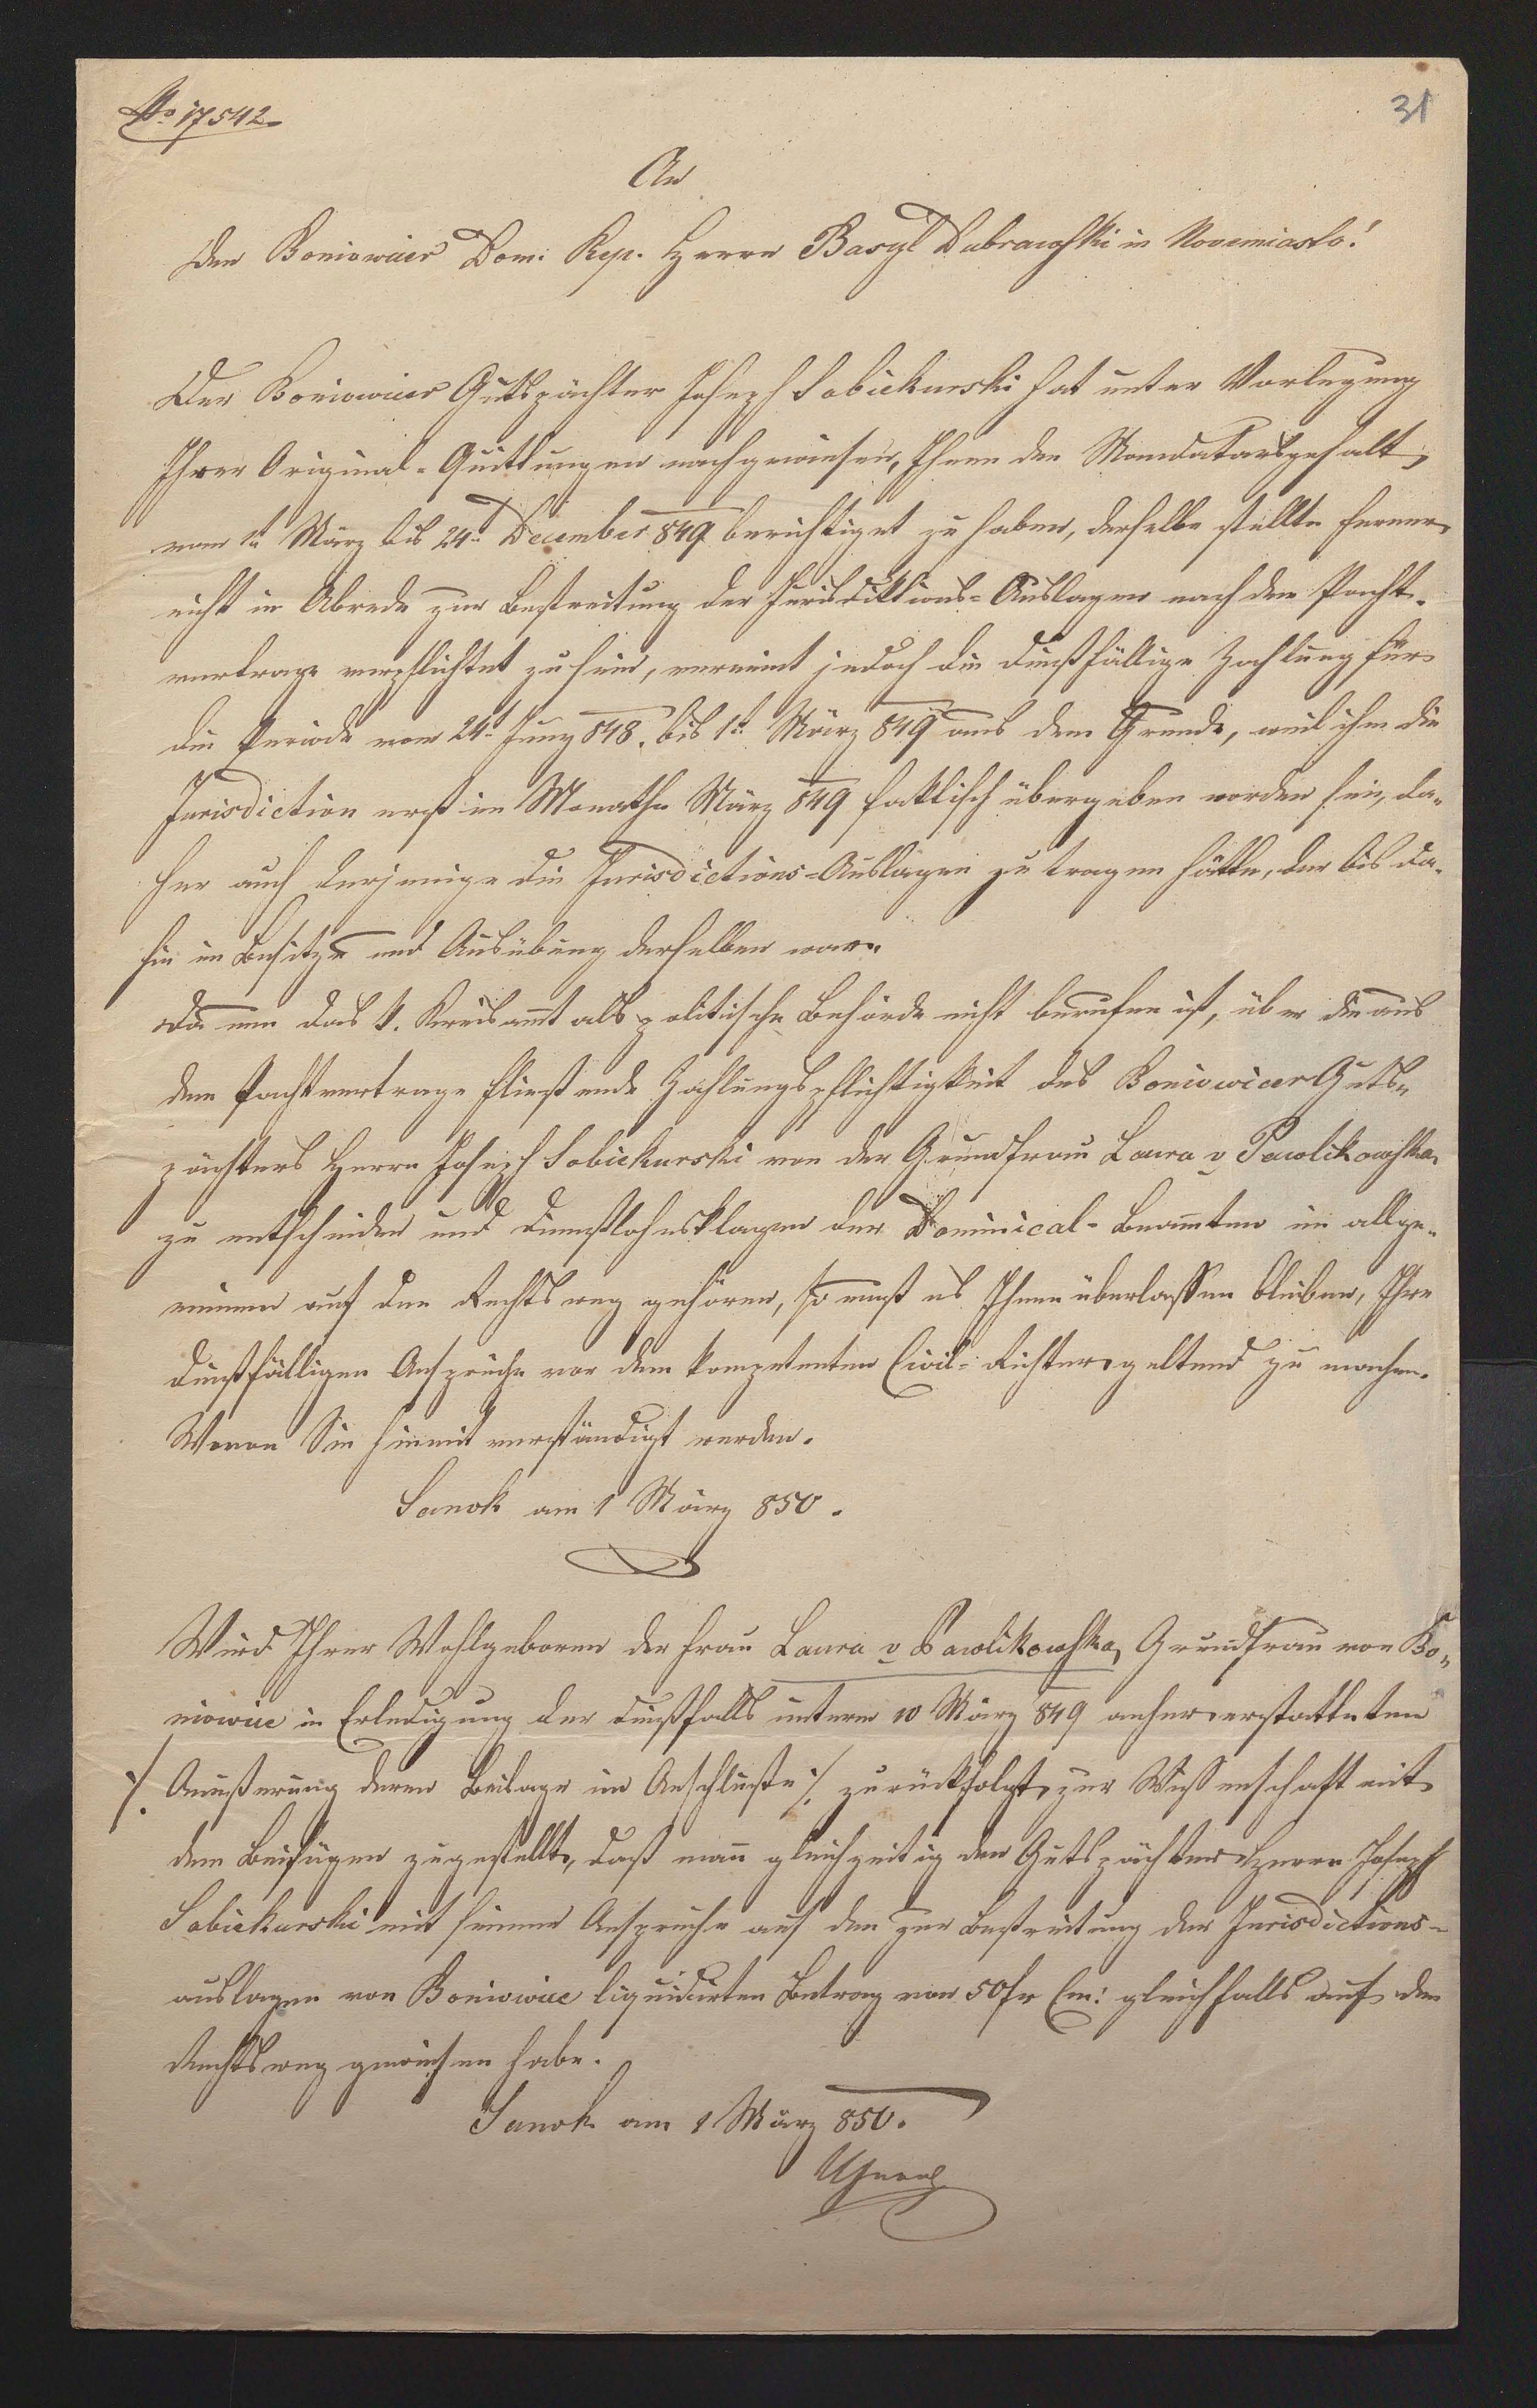 No 17542
31
An
den Boniowicer Dom: Rep. Herrn Basyl Dubrawski in Nowemiasto!
Der Boniowicer Gutspächter Joseph Sobiekurski hat unter Vorlegung
Ihrer Original-Quittungen nachgewiesen, Ihnen den Mandatarsgehalt
vom 1t März bis 24t December 849 berichtiget zu haben, derselbe stellte ferner
nicht in Abrede zur Bestreitung der Jurisdiktions-Auslagen nach dem Pacht-
vertrage verpflichtet zu sein, verneint jedoch die dießfällige Zahlung für
die Periode vom 24t Juny 848. bis 1t März 849 aus dem Grunde, weil ihm die
Jurisdiction erst im Monathe März 849 faktisch übergeben worden sei, da-
her auch derjenige die Jurisdictions-Auslagen zu tragen hätte, der bis da-
hin im Besitze und Ausübung derselben war.
Da nun das k. Kreisamt als politische Behörde nicht berufen ist, über die aus
dem Pachtvertrage fließende Zahlungspflichtigkeit des Boniowicer Guts-
pächters Herrn Joseph Sobiekurski von der Grundfrau Laura v Pawlikowska
zu entscheiden und Dienstlohnsklagen der Dominical-Beamten im allge-
meinen auf den Rechtsweg gehören, so muß es Ihnen überlassen bleiben, Ihre
dießfälligen Ansprüche vor dem kompetenten Civil-Richter geltend zu machen.
Wovon Sie hiemit verständigt werden.
Sanok am 1 März 850.
Wird Ihrer Wohlgeboren der Frau Laura v Pawlikowska, Grundfrau von Bo-
niowice in Erledigung der dießfalls unterm 10 März 849 anher erstatteten
./. Aeußerung deren Beilage im Anschluße ./. zurückfolgt, zur Wissenschaft mit
dem Beifügen zugestellt, daß man gleichzeitig den Gutspächter Herrn Joseph
Sobiekurski mit seinem Anspruche auf den zur Bestreitung der Jurisdictions-
auslagen von Boniowice liquidirten Betrag von 50 fr Cm: gleichfalls auf den
Rechtsweg gewiesen habe.
Sanok am 1 März 850.